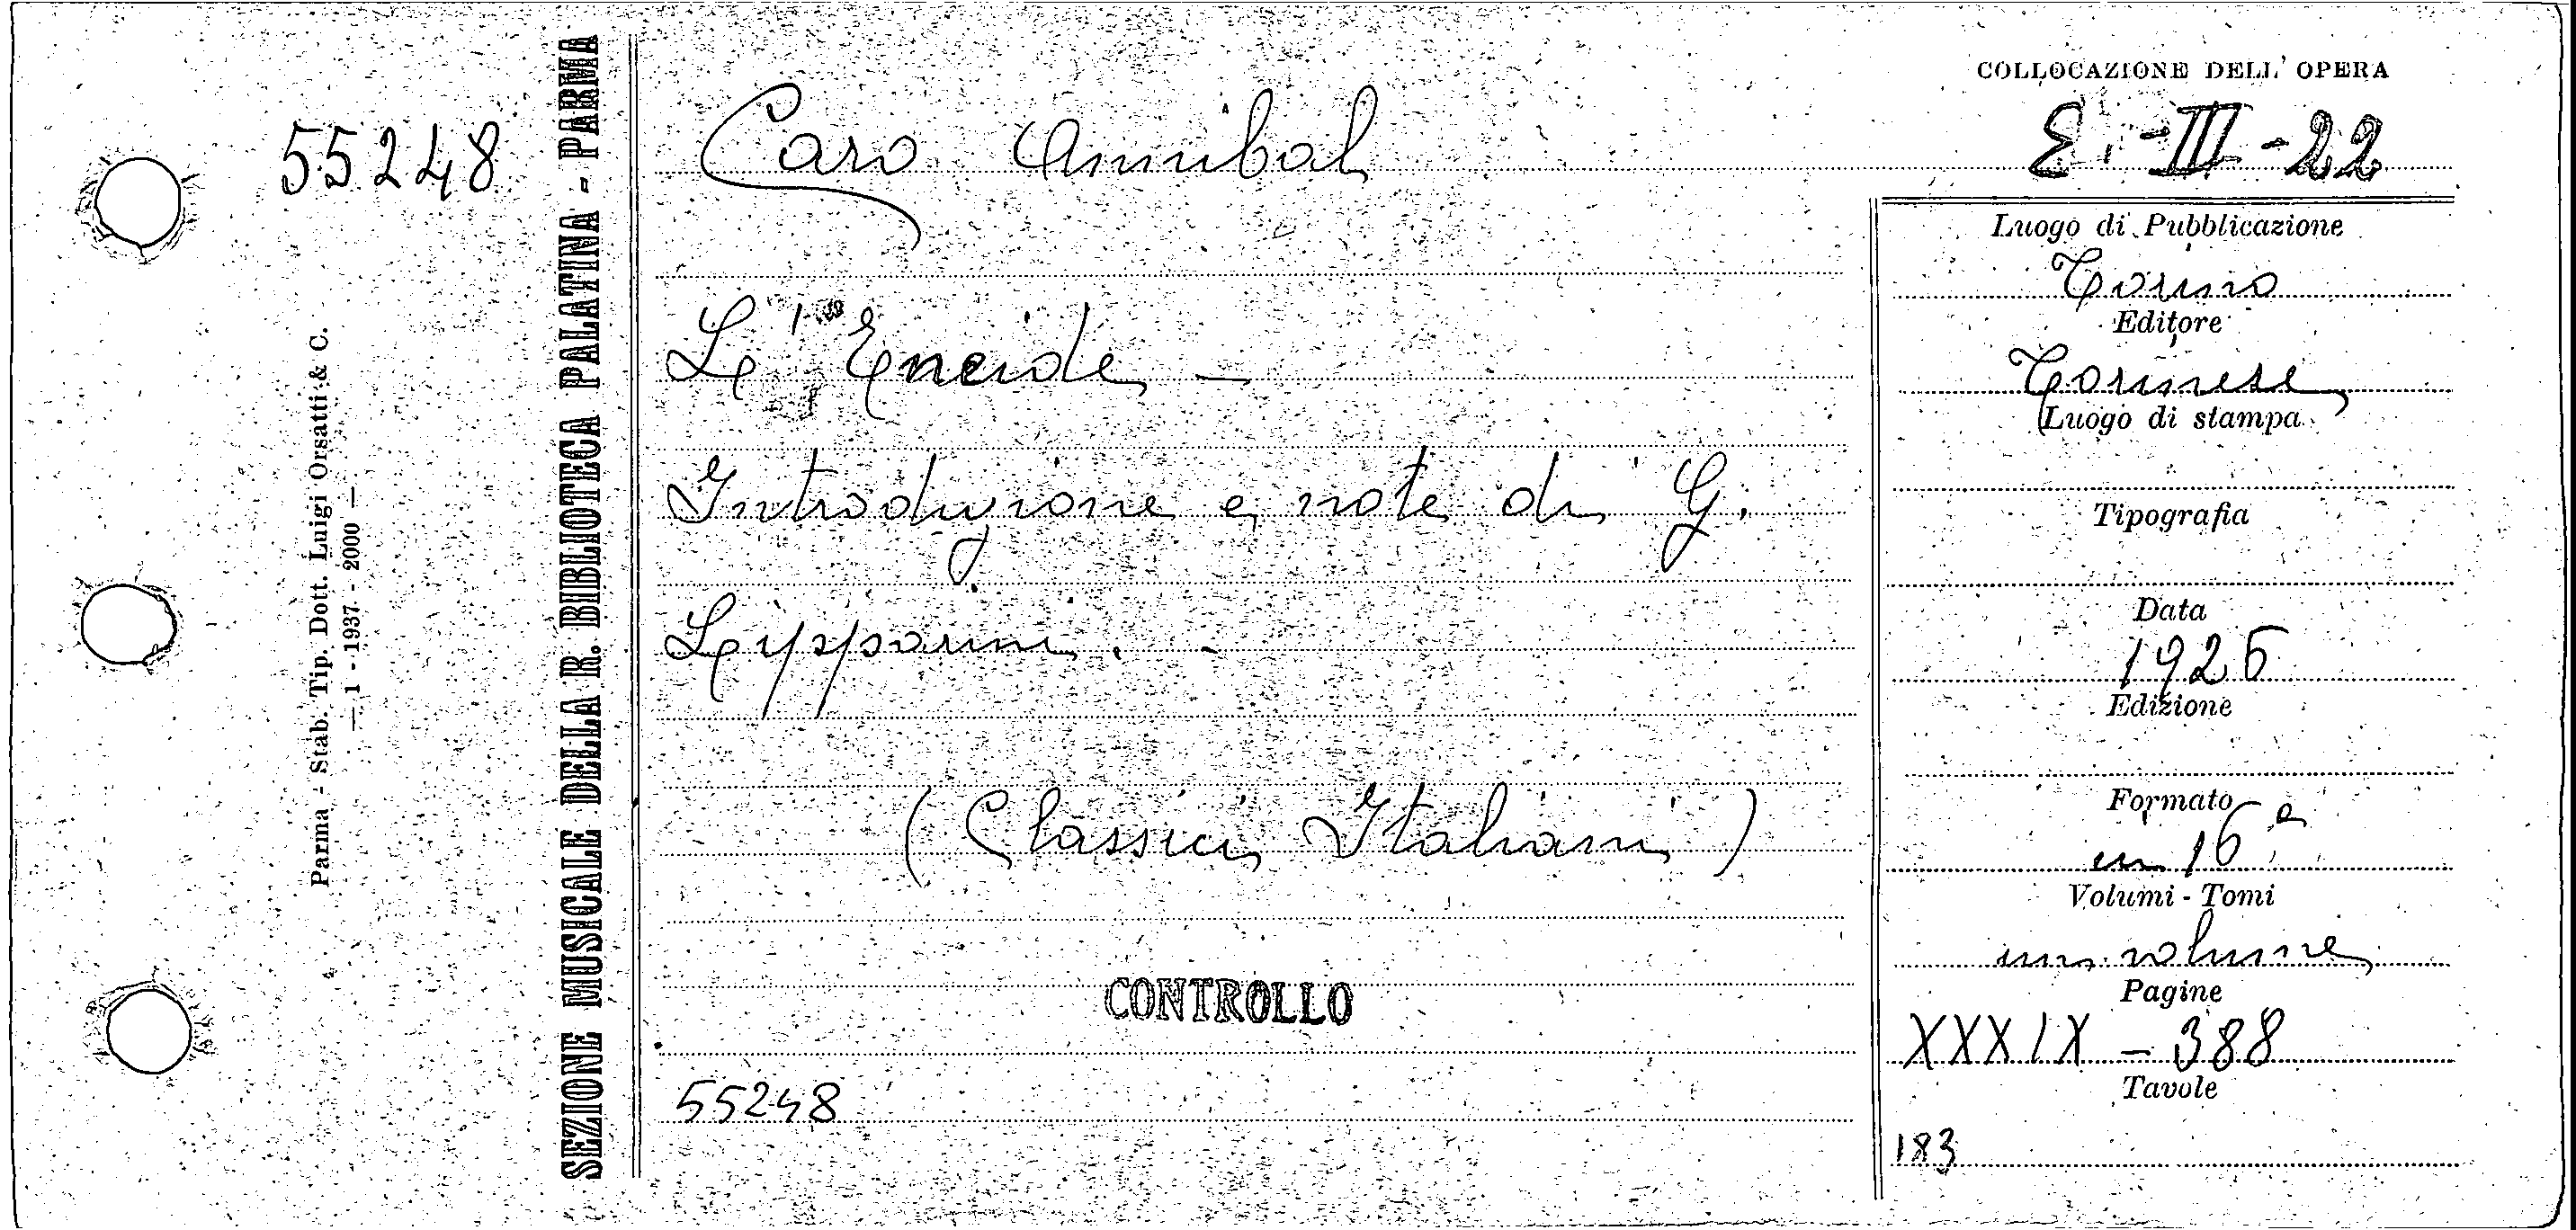 55248
Parma - Stab. Tip. Dott. Luigi Orsatti & C.
— 1 - 1937 - 2000 —
SEZIONE MUSICALE DELLA R. BIBLIOTECA PALATINA - PARMA
Caro Annibal
L'Eneide -
Introduzione e note di G.
Lipparini. -
(Classici Italiani)
CONTROLLO
55248
COLLOCAZIONE DELL' OPERA
E. - III - 22
Luogo di Pubblicazione
Torino
Editore
Torinese
Luogo di stampa
Tipografia
Data
1926
Edizione
Formato
in 16°
Volumi - Tomi
un volume
Pagine
XXXIX - 388
Tavole
183